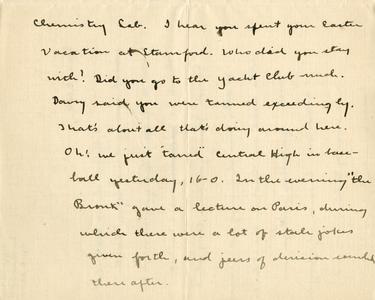 Chemistry Lab. I hear you spent your Easter
Vacation at Stamford. Who did you stay
with? Did you go to the Yacht Club much.
said you were tanned exceedingly.
That's about all that's doing around here.
Oh! we just "tanned" Central High in base-
ball yesterday, 16-0. In the evening "the
Bronk" gave a lecture on Paris, during
which there were a lot of stale jokes
given forth, and jeers of derision
thereafter.